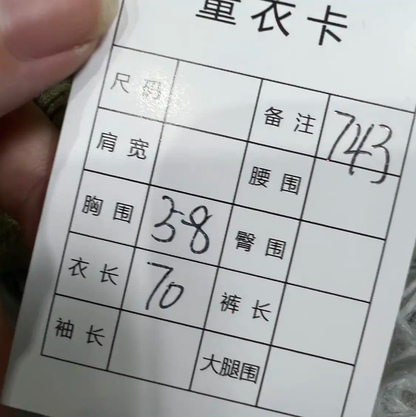 量衣卡
尺码 备注 743
肩宽 腰围
胸围 58 臀围
衣长 70 裤长
袖长 大腿围